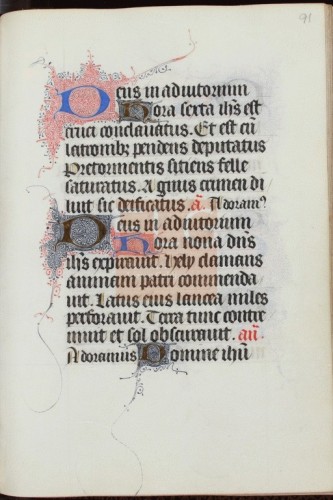 91
Deus in adiutorium
Hora sexta ihs est
cruci conclauatus. Et est cu
latronibz pendens deputatus
Pretormentis sitiens felle
saturatus. Agnus crimen di
luit sic deificatus. a. Adoram
Deus in adiutorium
Hora nona dns
ihs expirauit. Hely clamans
animam patri commenda
uit. Latus eius lancea miles
perforauit. Terra tunc contre
muit et sol obscurauit. an.
Adoramus Domine ihu